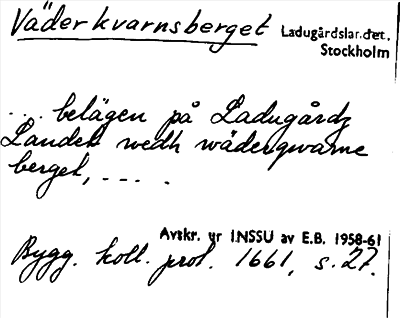 Väderkvarnsberget Ladugårdslandet,
Stockholm
... belägen på Ladugårdz
Landet wedh wäderqwarne
berget, -----.
Avskr. ur INSSU av E.B. 1958-61
Bygg. koll. prot. 1661, s. 27.